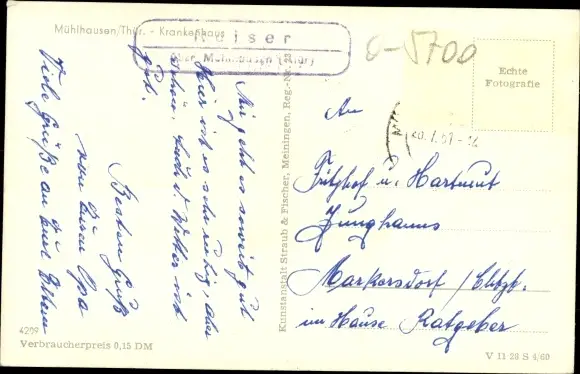 Mühlhausen/Thür. - Krankenhaus
Keiser
über Mühlhausen (Thür)
0-5700
Echte
Fotografie
Mir geht es soweit gut
Hier ist es sehr ruhig, aber
schön. Auch d. Wetter ist
gut.
Besten Gruß
von Eurem Opa
Viele Grüße an Eure Eltern
Kunstanstalt Straub & Fischer, Meiningen, Reg.-Nr.
An
20.7.61-
Fritzhof u. Hartmut
Junghanns
Markersdorf / Chtzt.
im Hause Ratgeber
4209
Verbraucherpreis 0,15 DM
V 11 28 S 4/60